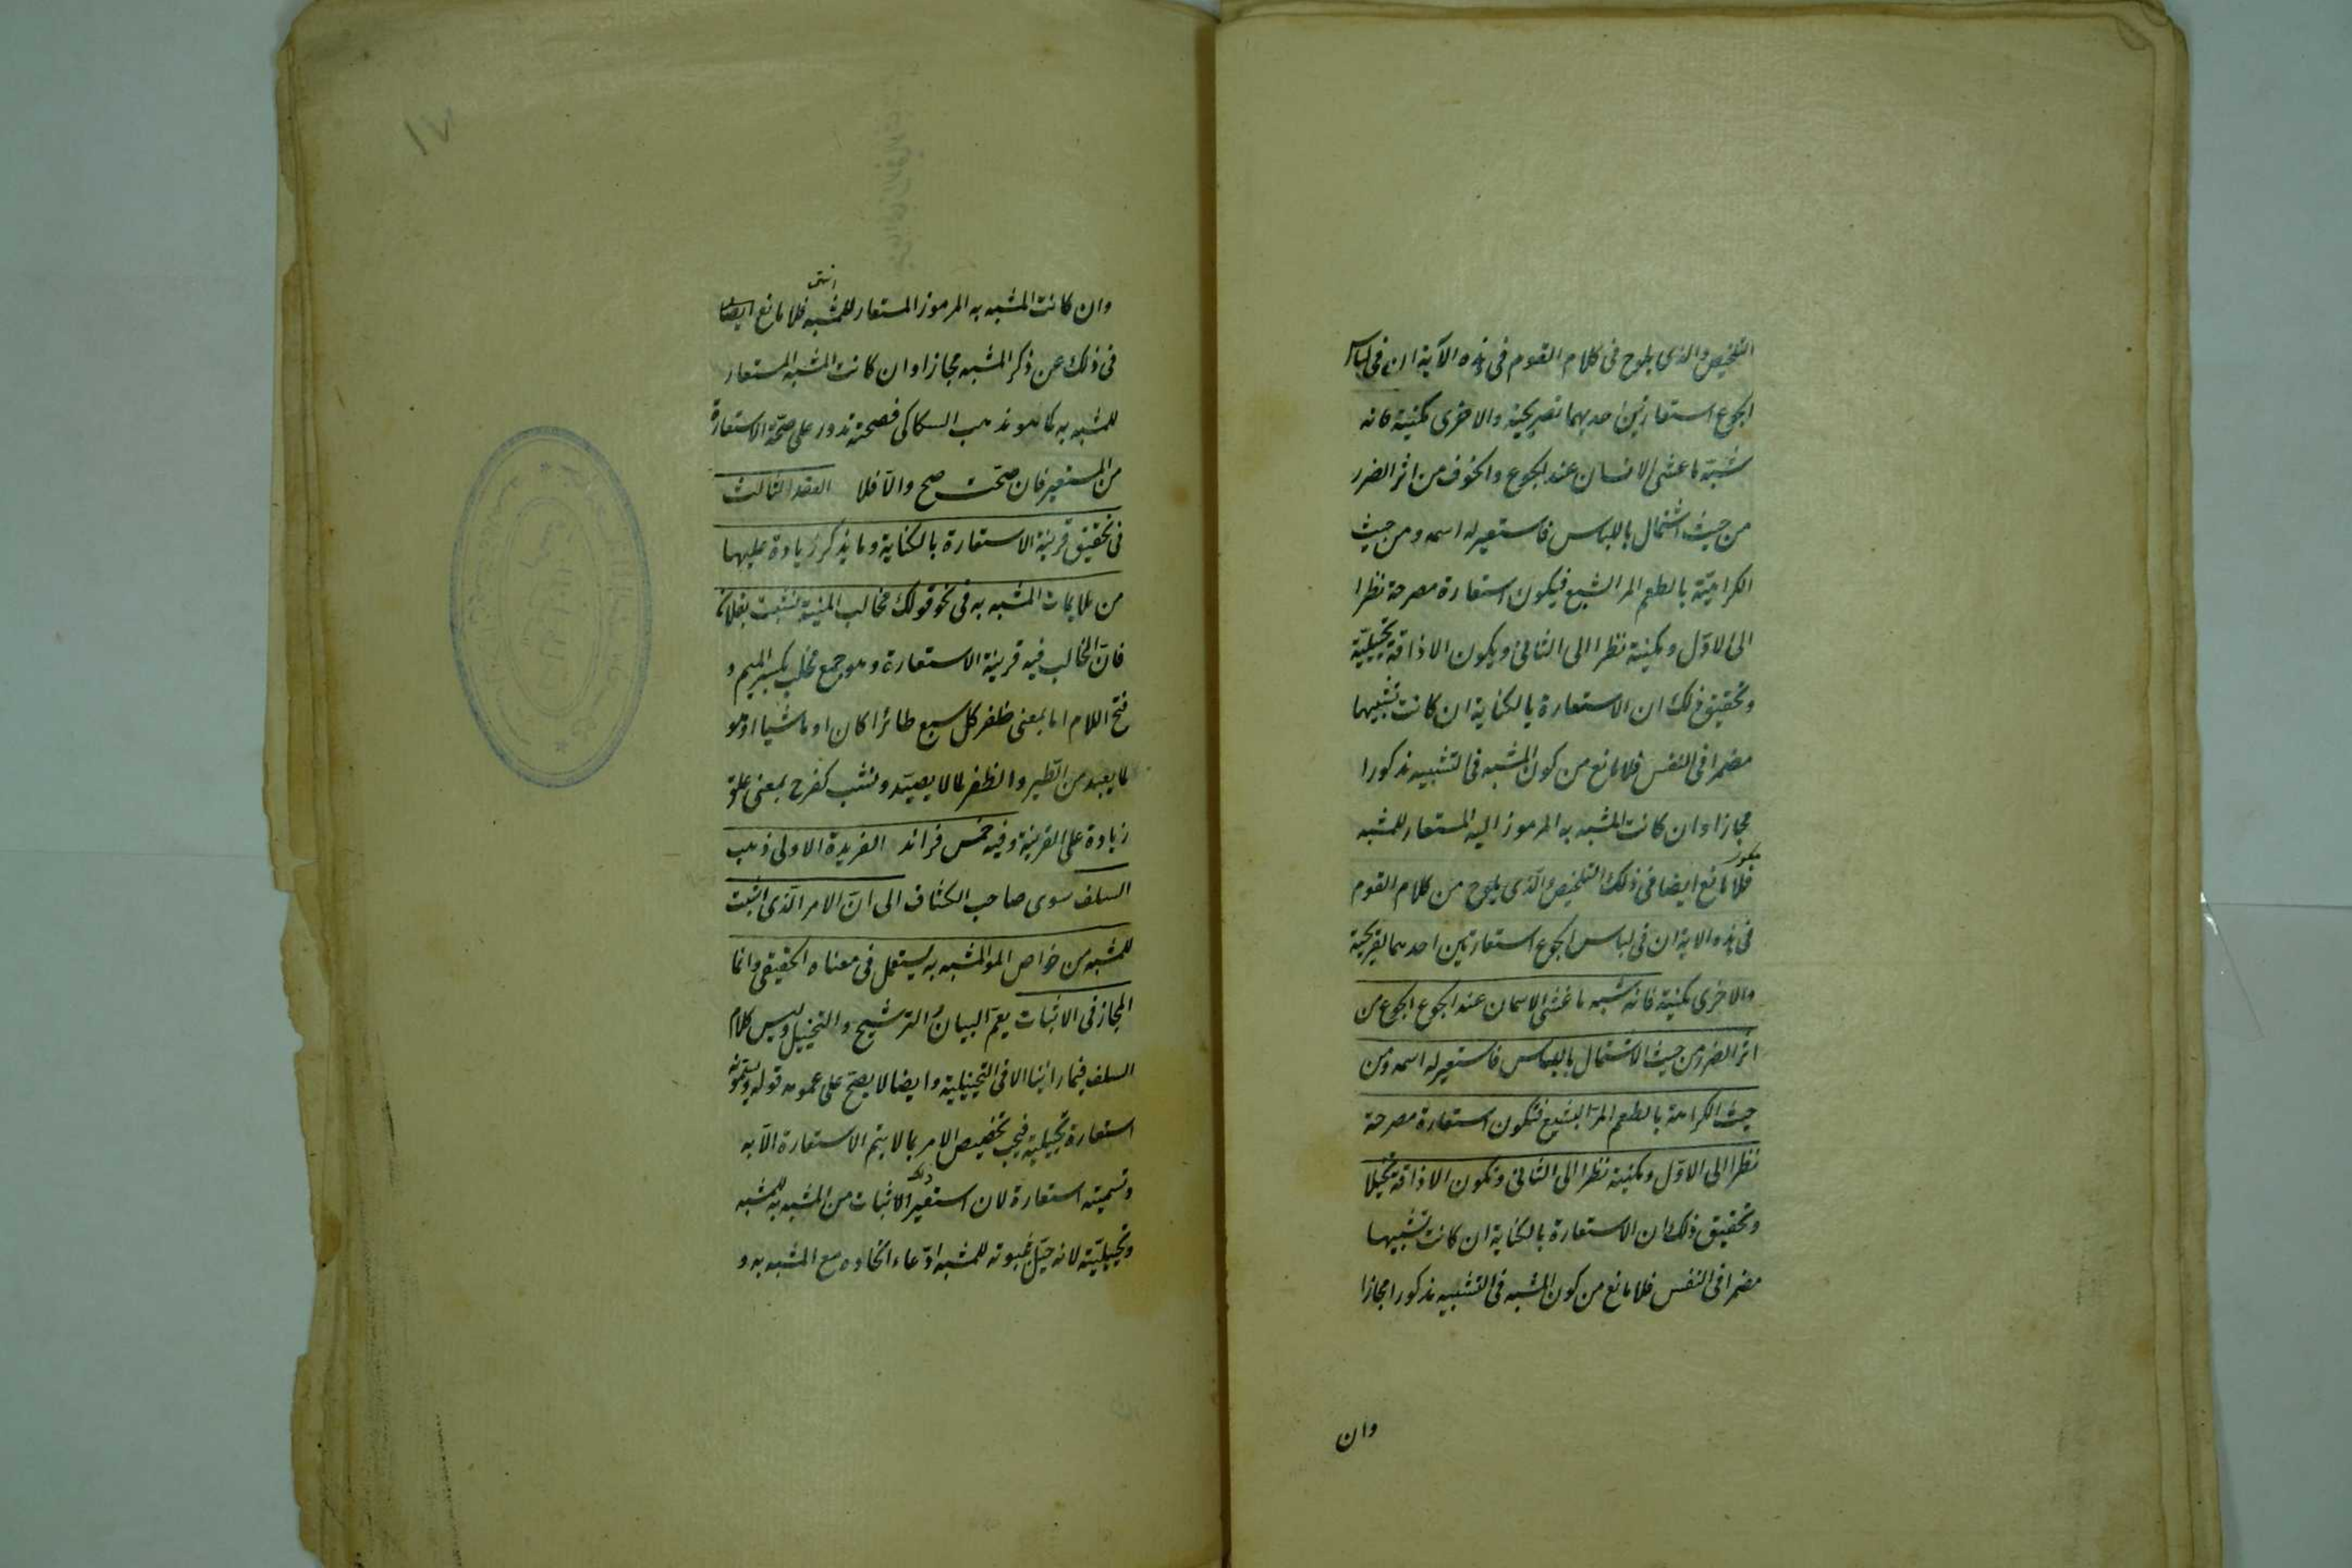 التلخيص والذى يلوح فى كلام القوم فى هذه الآية ان فى لباس
الجوع استعارتين احديهما تصريحية والاخرى مكنية كانه
شبه ما غشى الانسان عند الجوع والخوف من اثر الضرر
من حيث اشتمال باللباس فاستعير له اسمه ومن حيث
الكراهية بالطعم المر البشيع فيكون استعارة مصرحة نظرا
الى الاول ومكنية نظرا الى الثانى ويكون الاذاقة تخييلية
وتحقيق ذلك ان الاستعارة بالكناية ان كانت تشبيها
مضمرا فى النفس فلا مانع من كون المشبه فى التشبيه مذكورا
مجازا وان كانت المشبه به المرموز اليه المستعار للمشبه
فلا مانع ايضا فى ذلك التلخيص والذى يلوح من كلام القوم
فى هذه الاية ان فى لباس الجوع استعارتين احدهما تصريحية
والاخرى مكنية فانه شبه ما غشى الانسان عند الجوع الجوع من
اثر الضرر من حيث الاشتمال باللباس فاستعير له اسمه ومن
حيث الكراهة بالطعم المر البشيع فتكون استعارة مصرحة
نظرا الى الاول ومكنية نظرا الى الثانى وتكون الاذاقة تخيلا
وتحقيق ذلك ان الاستعارة بالكناية ان كانت تشبيها
مضمرا فى النفس فلا مانع من كون المشبه فى التشبيه مذكورا مجازا
وان
وان كانت المشبه به المرموز المستعار للمشبه فلا مانع ايضا
انتهى
فى ذلك عن ذكر المشبه مجازا وان كانت المشبه المستعار
للمشبه به كما هو مذهب السكاكى فصحته تدور على صحة الاستعارة
من المستعير فان صحت صح والا فلا العقد الثالث
فى تحقيق قرينة الاستعارة بالكناية وما يذكر زيادة عليها
من ملايمات المشبه به فى نحو قولك مخالب المنية نشبت بفلان
فان المخالب فيه قرينة الاستعارة وهو جمع مخلب بكسر الميم و
فتح اللام اما بمعنى ظفر كل سبع طائرا كان او ماشيا او هو
لما يصيد من الطير والظفر لما لا يصيد ونشب كفرح بمعنى علق
زيادة على القرينة وفيه خمس فرائد الفريدة الاولى ذهب
السلف سوى صاحب الكشاف الى ان الامر الذى اثبت
للمشبه من خواص المشبه به يستعمل فى معناه الحقيقى وانما
المجاز فى الاثبات يعم البيان والترشيح والتخييل وليس كلام
السلف فيما راينا الا فى التخييلية وايضا لا يصح على عمومه قوله ويسمونه
استعارة تخييلية فيجب تخصيص الامر بما لا يتم الاستعارة الا به
وتسميته استعارة لان استعير ذلك الاثبات من المشبه به للمشبه
وتخييلية لانه خيل ثبوته للمشبه ادعاء اتحاده مع المشبه به و